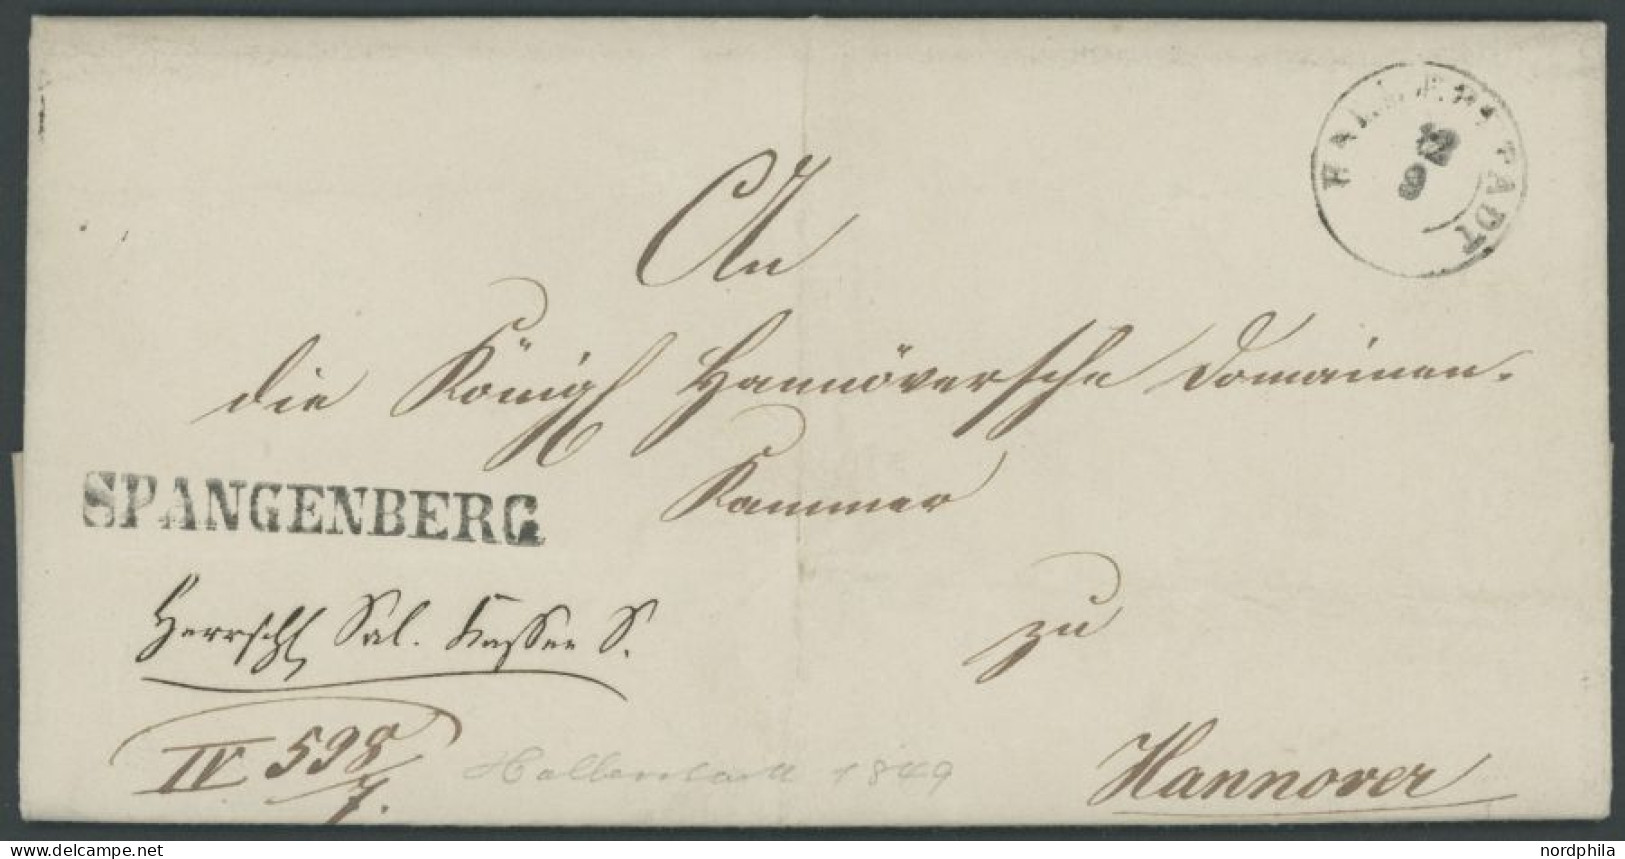 HALBERSTADT
12
9
An
die Königl Hannöversche Domainen-
Kammer
SPANGENBERG
zu
Herrschl Sal. Kassen S.
IV 598/7.
Halberstadt 1849
Hannover
© nordphila
www.delcampe.net
nordphila